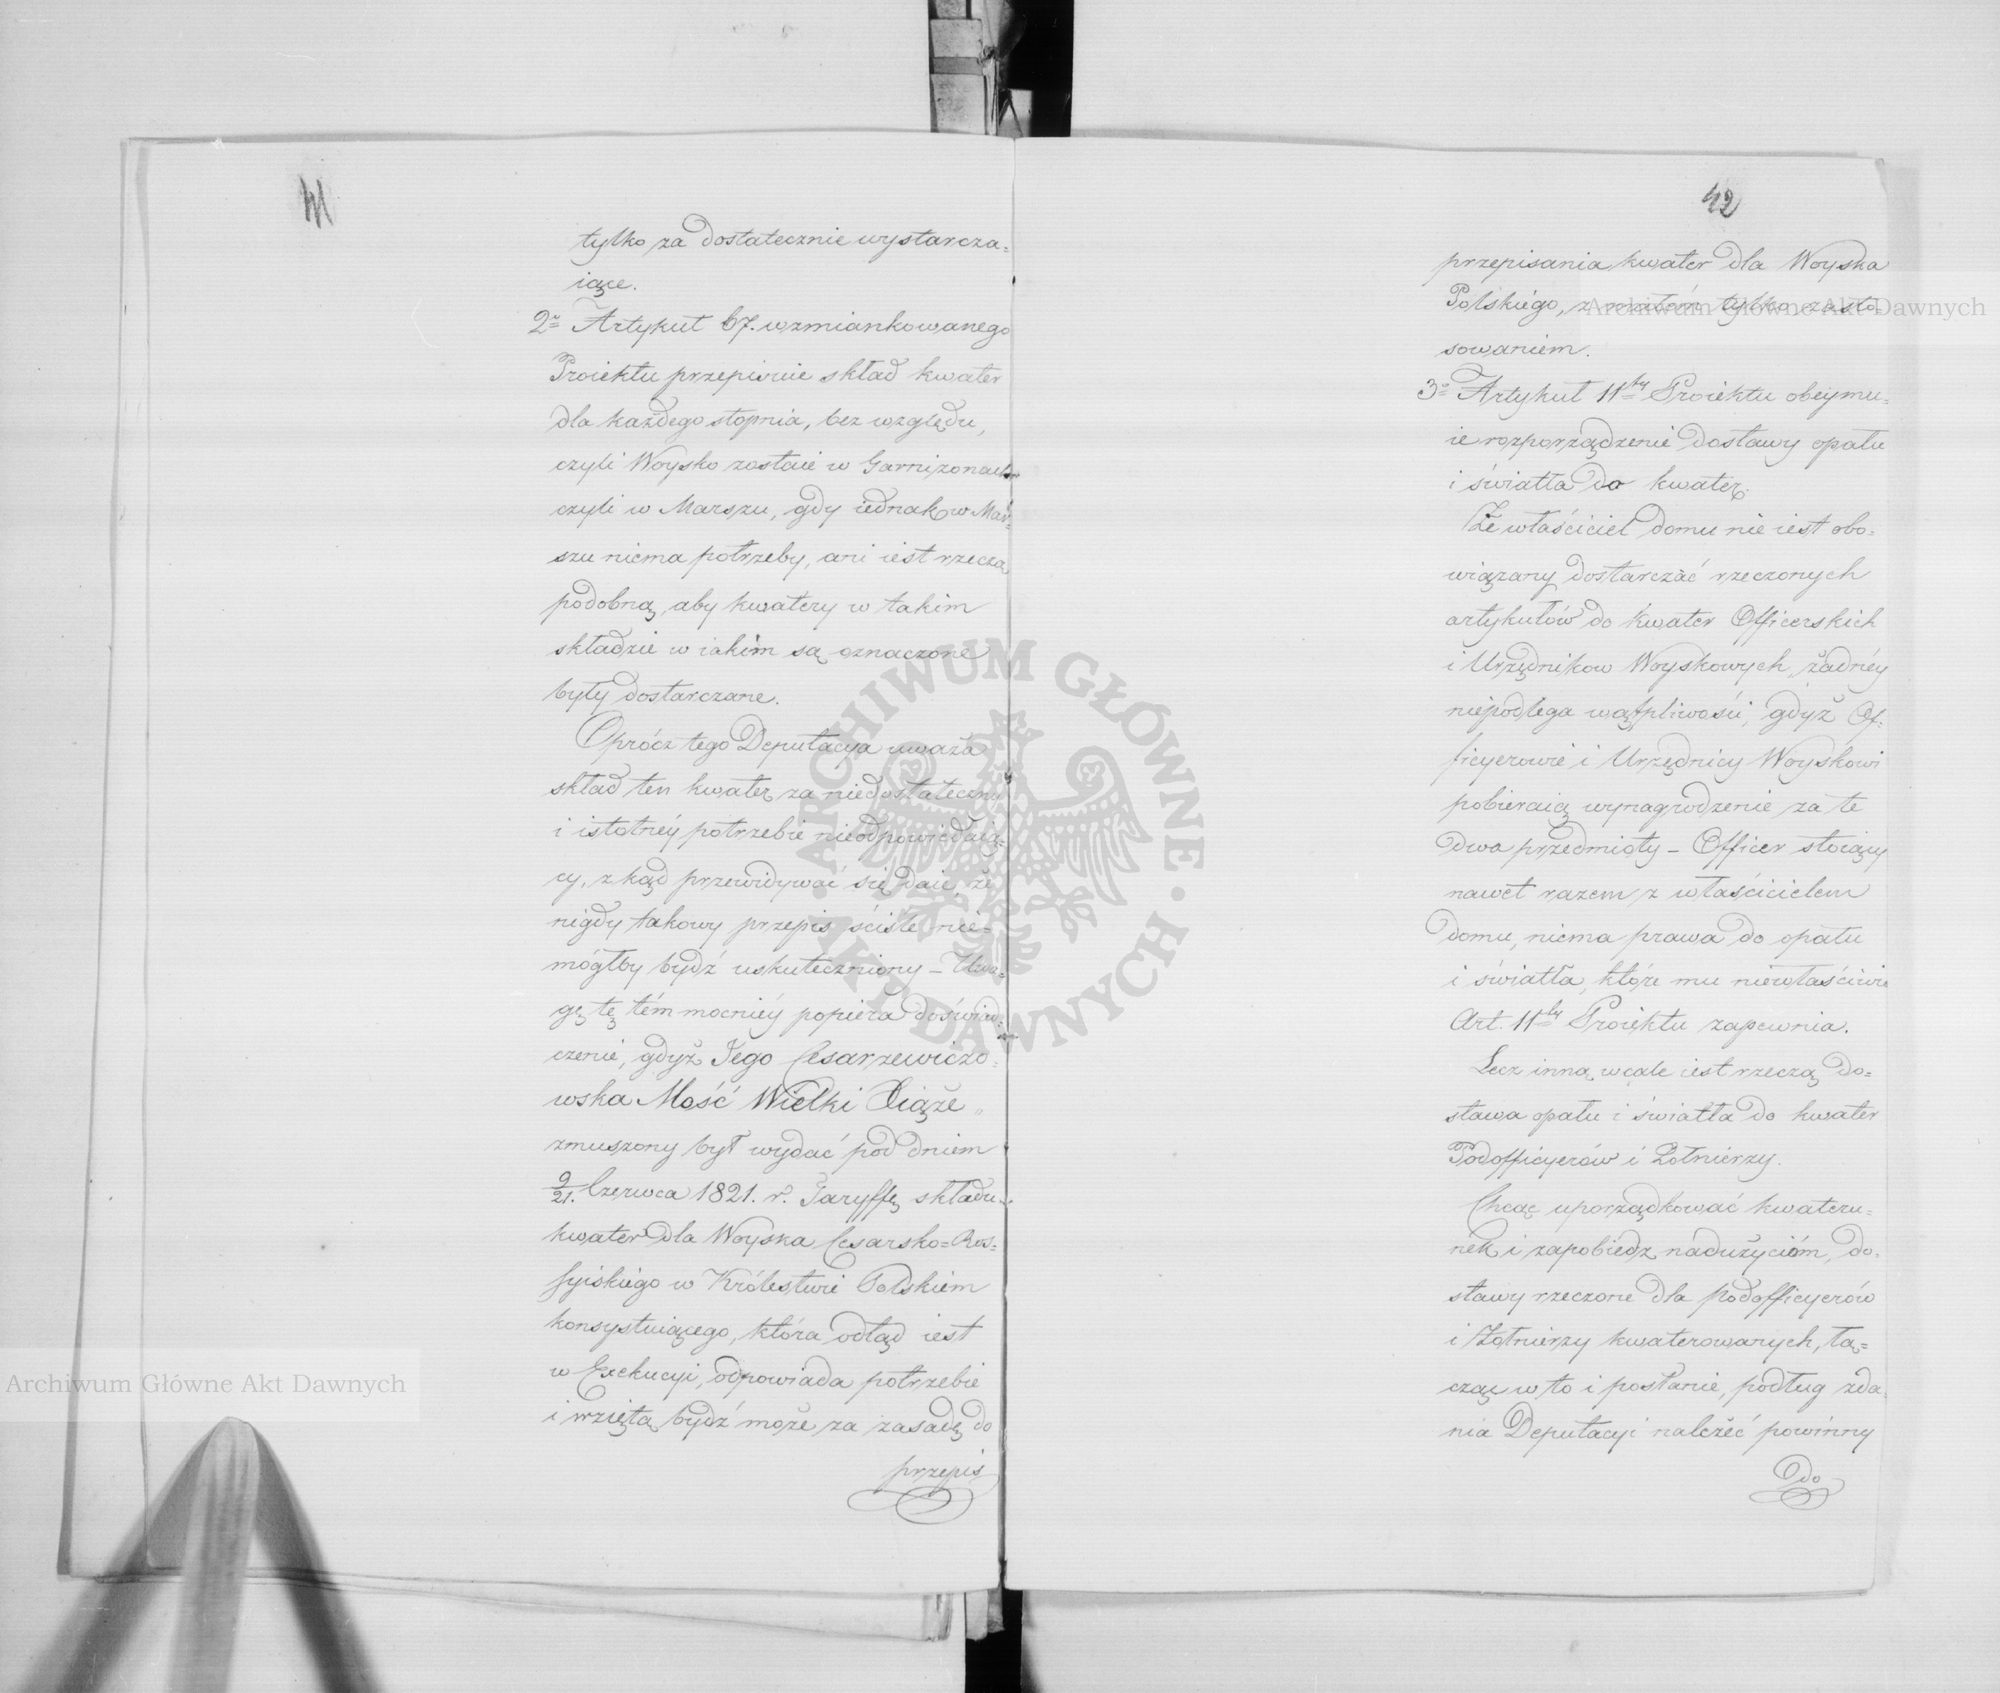 41
tylko za dostatecznie wystarcza=
iące.
2º Artykuł 67. wzmiankowanego
Proiektu przepisuie skład kwater
dla każdego stopnia, bez względu,
czyli Woysko zostaie w Garnizonach
czyli w Marszu, gdy iednak w Mar=
szu niema potrzeby, ani iest rzeczą
podobną, aby kwatery w takim
składzie w iakim są oznaczone
były dostarczane.
Oprócz tego Deputacya uważa
skład ten kwater za niedostateczny
i istotnéy potrzebie nieodpowiedaią=
cy, z kąd przewidywać się daie, że
nigdy takowy przepis ściśle nie=
mógłby bydź uskuteczniony – Uwa=
gę tę tém mocniéy popiera doświad=
czenie, gdyż Jego Cesarzewiczo=
wska Mość Wielki Xiąże
zmuszony był wydać pod dniem
9/21. Czerwca 1821. r. Taryffę składu
kwater dla Woyska Cesarsko=Ros=
syiskiego w Królestwie Polskiem
konsystuiącego, która odtąd iest
w Exekucyi, odpowiada potrzebie
i wziętą bydź może za zasadę do
przepis
42
przepisania kwater dla Woyska
Polskiego, z małém tylko zasto=
sowaniem.
3º Artykuł 11ty Proiektu obeymu=
ie rozporządzenie dostawy opału
i światła do kwater.
Że właściciel domu nie iest obo=
wiązany dostarczać rzeczonych
artykułów do kwater Officerskich
i Urzędnikow Woyskowych, żadnéy
niepodlega wątpliwości, gdyż Of=
ficyerowie i Urzędnicy Woyskowi
pobieraią wynagrodzenie za te
dwa przedmioty – Officer stoiący
nawet razem z właścicielem
domu, niema prawa do opału
i światła, które mu niewłaściwie
Art. 11ty Proiektu zapewnia.
Lecz inną wcale iest rzeczą do=
stawa opału i światła do kwater
Podofficyerów i Żołnierzy.
Chcąc uporządkować kwateru=
nek i zapobiedz nadużycióm, do=
stawy rzeczone dla podofficyerów
i Żołnierzy kwaterowanych, łą=
cząc w to i posłanie, podług zda=
nia Deputacyi należéć powinny
do
Archiwum Główne Akt Dawnych
Archiwum Główne Akt Dawnych
ARCHIWUM GŁÓWNE · AKT DAWNYCH ·